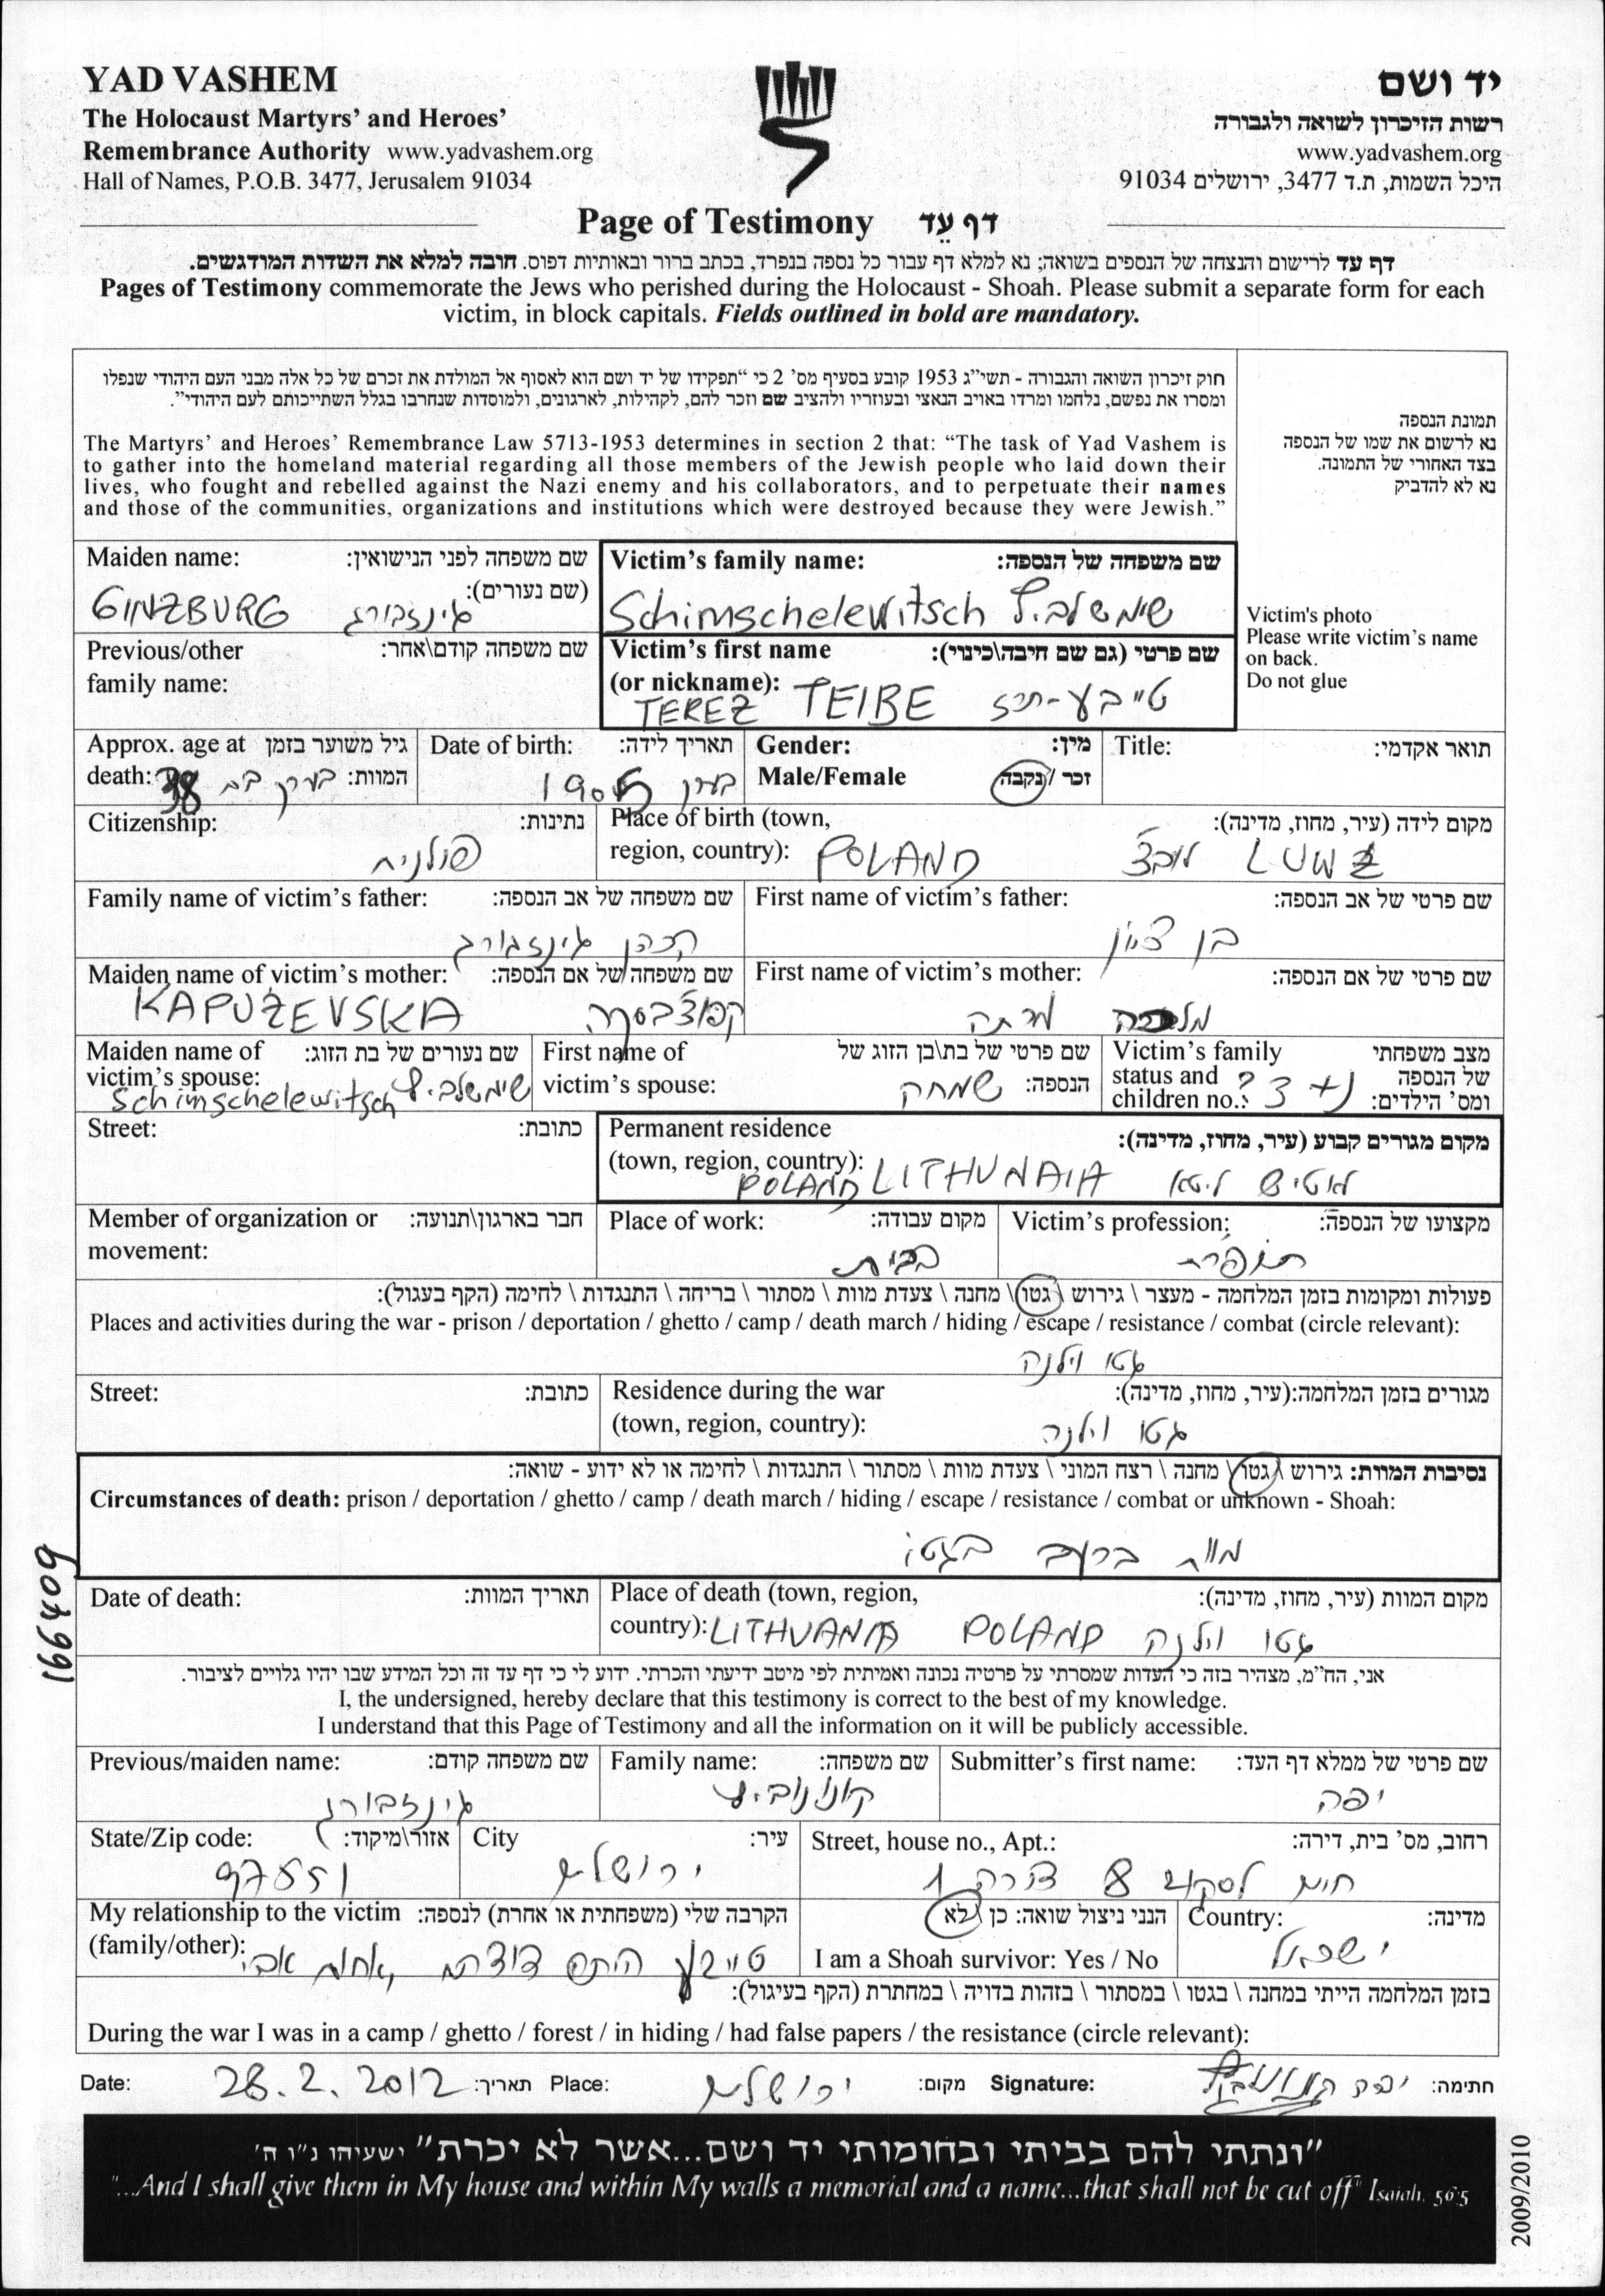 YAD VASHEM
The Holocaust Martyrs' and Heroes'
Remembrance Authority www.yadvashem.org
Hall of Names, P.O.B. 3477, Jerusalem 91034
יד ושם
רשות הזיכרון לשואה ולגבורה
www.yadvashem.org
היכל השמות, ת.ד 3477, ירושלים 91034
Page of Testimony דף עֵד
דף עד לרישום והנצחה של הנספים בשואה; נא למלא דף עבור כל נספה בנפרד, בכתב ברור ובאותיות דפוס. חובה למלא את השדות המודגשים.
Pages of Testimony commemorate the Jews who perished during the Holocaust - Shoah. Please submit a separate form for each
victim, in block capitals. Fields outlined in bold are mandatory.
חוק זיכרון השואה והגבורה - תשי"ג 1953 קובע בסעיף מס' 2 כי "תפקידו של יד ושם הוא לאסוף אל המולדת את זכרם של כל אלה מבני העם היהודי שנפלו
ומסרו את נפשם, נלחמו ומרדו באויב הנאצי ובעוזריו ולהציב שם וזכר להם, לקהילות, לארגונים, ולמוסדות שנחרבו בגלל השתייכותם לעם היהודי".
The Martyrs' and Heroes' Remembrance Law 5713-1953 determines in section 2 that: "The task of Yad Vashem is
to gather into the homeland material regarding all those members of the Jewish people who laid down their
lives, who fought and rebelled against the Nazi enemy and his collaborators, and to perpetuate their names
and those of the communities, organizations and institutions which were destroyed because they were Jewish."
תמונת הנספה
נא לרשום את שמו של הנספה
בצד האחורי של התמונה.
נא לא להדביק
Victim's photo
Please write victim's name
on back.
Do not glue
Maiden name: שם משפחה לפני הנישואין:
(שם נעורים):
GINZBURG גינזבורג
Victim's family name: שם משפחה של הנספה:
Schimschelewitsch שימשלביץ
Previous/other שם משפחה קודם\אחר:
family name:
Victim's first name שם פרטי (גם שם חיבה\כינוי):
(or nickname): TEREZ TEIBE טייבע-תרז
Approx. age at גיל משוער בזמן
death: 38 המוות: בערך בת
Date of birth: תאריך לידה:
בערך 1905
Gender: מין:
Male/Female זכר / נקבה
Title: תואר אקדמי:
Citizenship: נתינות:
פולניה
Place of birth (town, מקום לידה (עיר, מחוז, מדינה):
region, country): POLAND לובץ LUWZ
Family name of victim's father: שם משפחה של אב הנספה:
הכהן גינזבורג
First name of victim's father: שם פרטי של אב הנספה:
בן ציון
Maiden name of victim's mother: שם משפחה של אם הנספה:
KAPUZEVSKA קפוצבסקה
First name of victim's mother: שם פרטי של אם הנספה:
מרתה
Maiden name of שם נעורים של בת הזוג:
victim's spouse:
Schimschelewitsch שימשלביץ
First name of שם פרטי של בת\בן הזוג של
victim's spouse: הנספה: שמחה
Victim's family מצב משפחתי
status and של הנספה
children no.: ומס' הילדים: נ + 3 ?
Street: כתובת:
Permanent residence מקום מגורים קבוע (עיר, מחוז, מדינה):
(town, region, country):
POLAND LITHUNAIA ליטא
Member of organization or חבר בארגון\תנועה:
movement:
Place of work: מקום עבודה:
בבית
Victim's profession: מקצועו של הנספה:
תופרת
פעולות ומקומות בזמן המלחמה - מעצר \ גירוש \ גטו \ מחנה \ צעדת מוות \ מסתור \ בריחה \ התנגדות \ לחימה (הקף בעגול):
Places and activities during the war - prison / deportation / ghetto / camp / death march / hiding / escape / resistance / combat (circle relevant):
גטו וילנה
Street: כתובת:
Residence during the war מגורים בזמן המלחמה:(עיר, מחוז, מדינה):
(town, region, country):
גטו וילנה
נסיבות המוות: גירוש \ גטו \ מחנה \ רצח המוני \ צעדת מוות \ מסתור \ התנגדות \ לחימה או לא ידוע - שואה:
Circumstances of death: prison / deportation / ghetto / camp / death march / hiding / escape / resistance / combat or unknown - Shoah:
מוות ברעב בגטו
Date of death: תאריך המוות:
Place of death (town, region, מקום המוות (עיר, מחוז, מדינה):
country): LITHUANIA POLAND גטו וילנה
אני, הח"מ, מצהיר בזה כי העדות שמסרתי על פרטיה נכונה ואמיתית לפי מיטב ידיעתי והכרתי. ידוע לי כי דף עד זה וכל המידע שבו יהיו גלויים לציבור.
I, the undersigned, hereby declare that this testimony is correct to the best of my knowledge.
I understand that this Page of Testimony and all the information on it will be publicly accessible.
Previous/maiden name: שם משפחה קודם:
גינזבורג
Family name: שם משפחה:
Submitter's first name: שם פרטי של ממלא דף העד:
יפה
State/Zip code: אזור\מיקוד:
97551
City עיר:
ירושלים
Street, house no., Apt.: רחוב, מס' בית, דירה:
חיים לסקוב 8 דירה 1
My relationship to the victim הקרבה שלי (משפחתית או אחרת) לנספה:
(family/other): טייבע היתה דודתי, אחות אבי
הנני ניצול שואה: כן \ לא
I am a Shoah survivor: Yes / No
Country: מדינה:
ישראל
בזמן המלחמה הייתי במחנה \ בגטו \ במסתור \ בזהות בדויה \ במחתרת (הקף בעיגול):
During the war I was in a camp / ghetto / forest / in hiding / had false papers / the resistance (circle relevant):
Date: 28.2.2012 תאריך: Place: ירושלים מקום: Signature: יפה חתימה:
"ונתתי להם בביתי ובחומותי יד ושם...אשר לא יכרת" ישעיהו נ"ו ה'
"...And I shall give them in My house and within My walls a memorial and a name...that shall not be cut off" Isaiah, 56:5
2009/2010